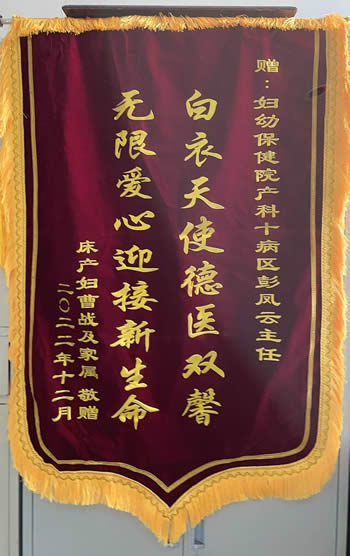 赠：妇幼保健院产科十病区彭凤云主任
白衣天使德医双馨
无限爱心迎接新生命
床产妇曹战及家属 敬赠
二〇二二年十二月